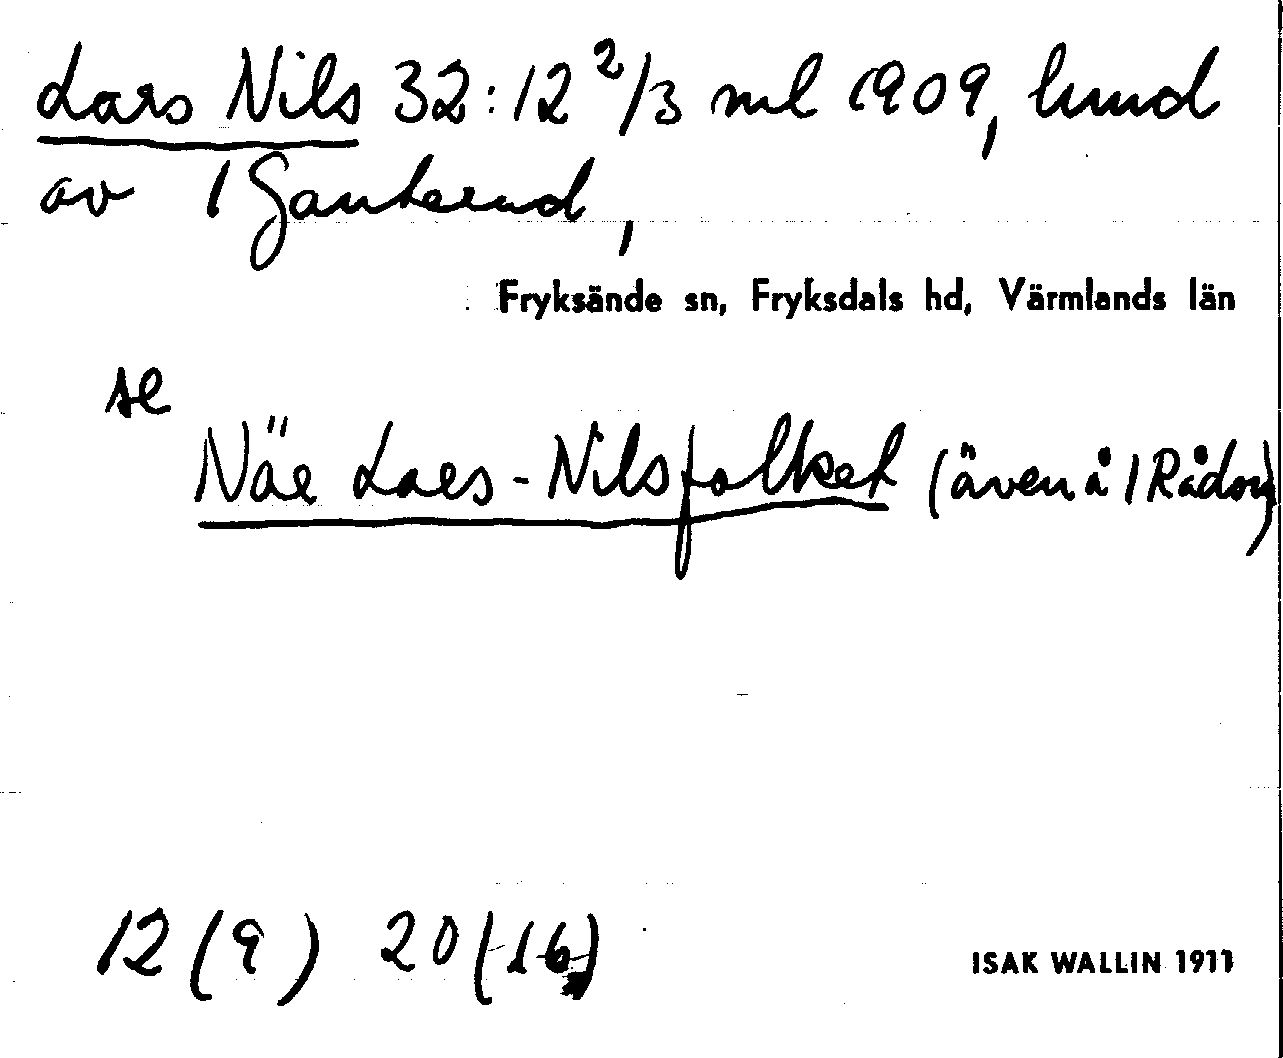 Lars Nils 32:12 2/3 ml 1909, lund
av 1 Gunterud,
Fryksände sn, Fryksdals hd, Värmlands län
se
Näe Laes-Nilsfolket (även å 1 Rådom)
12 (9) 20 (16)
ISAK WALLIN 1911